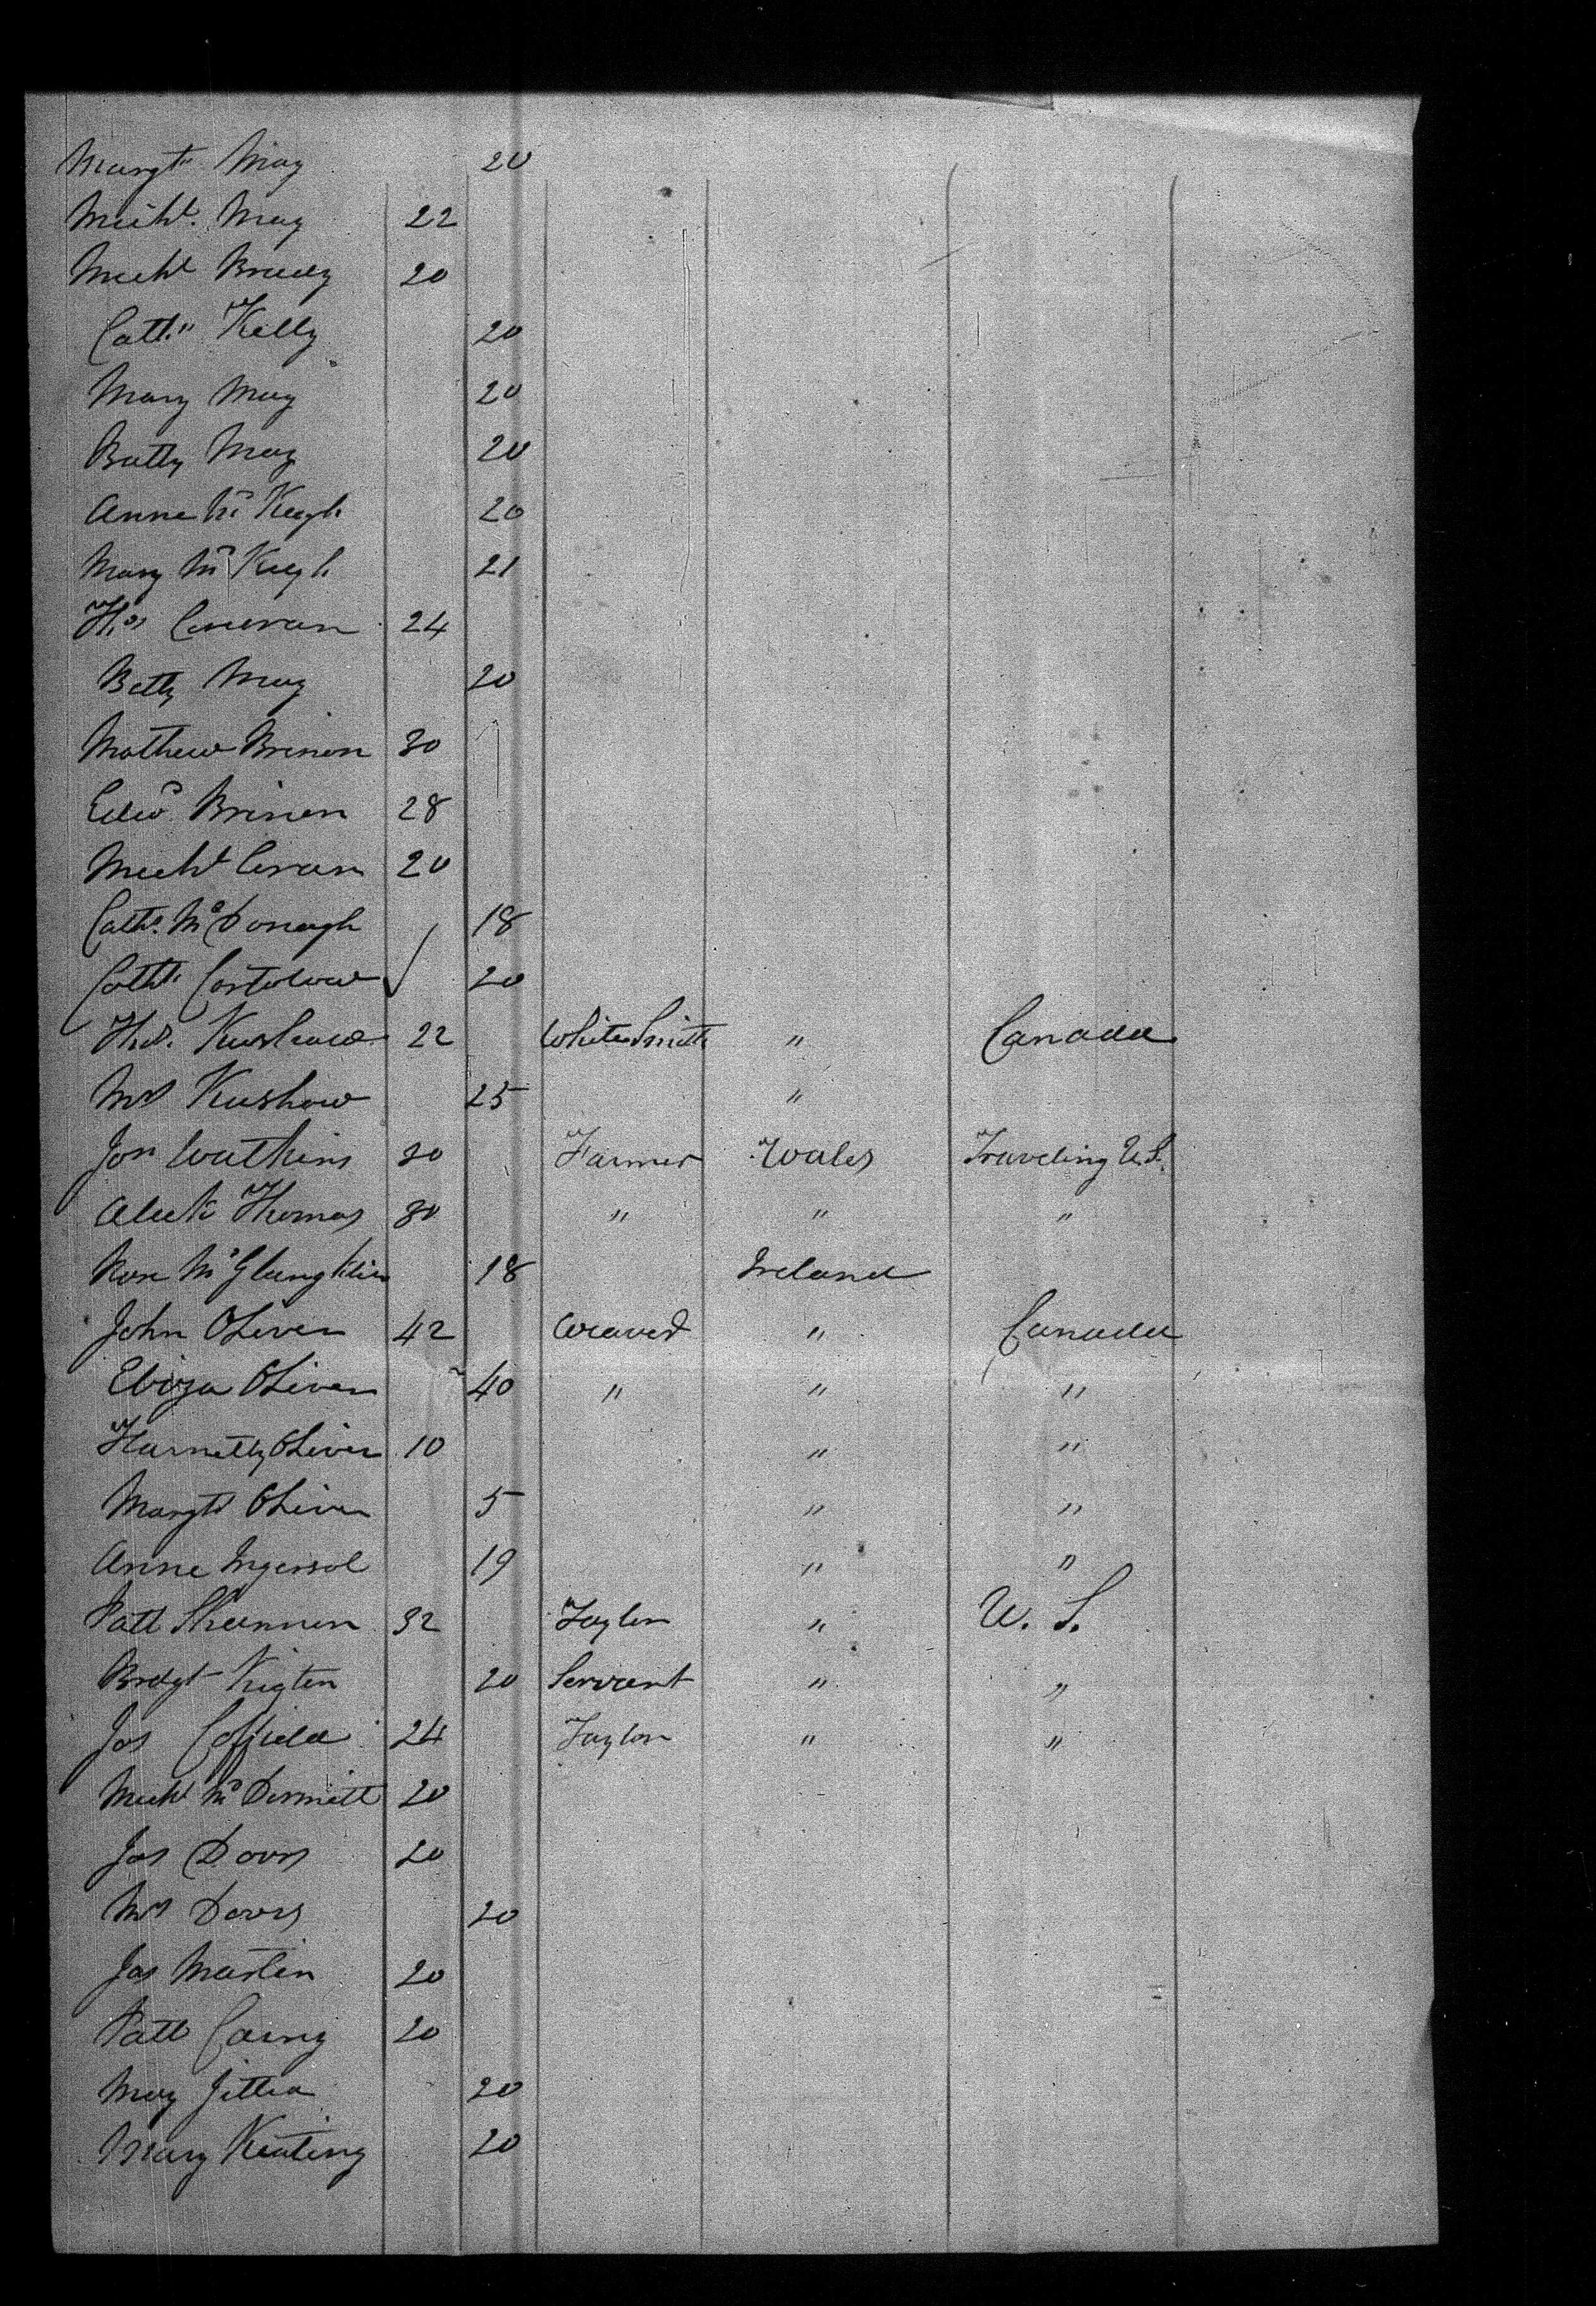 Margt May 20
Michl. May 22
Michl Brady 20
Cath" Kelly 20
Mary May 20
Batty May 20
Anne Mc Keegh 20
Mary Mc Keegh 21
Thos 24
Betty May 20
Mathew Brinon 30
Edwd Brinon 28
Michl 20
Cathe. McDonagh 18
Cathe Costolow 20
Thos. Kershow 22 White Smith " Canada
Mrs Kershow 25 "
Jon Watkins 30 Farmer Wales Traveling U.S.
Aleck Thomas 30 " " "
Rose Mc 18 Ireland
John Oliver 42 Weaver " Canada
Eliza Oliver 40 " " "
Oliver 10 " "
Margt Oliver 5 " "
Anne Ingersol 19 " "
Patt Shannon 32 Taylor " U. S.
Bredgt 20 Servant " "
Jas 24 Taylor " "
Michl Mc Dermitt 20
Jas Davis 20
Mrs Davis 20
Jas Martin 20
Patt 20
May 20
Mary Keating 20